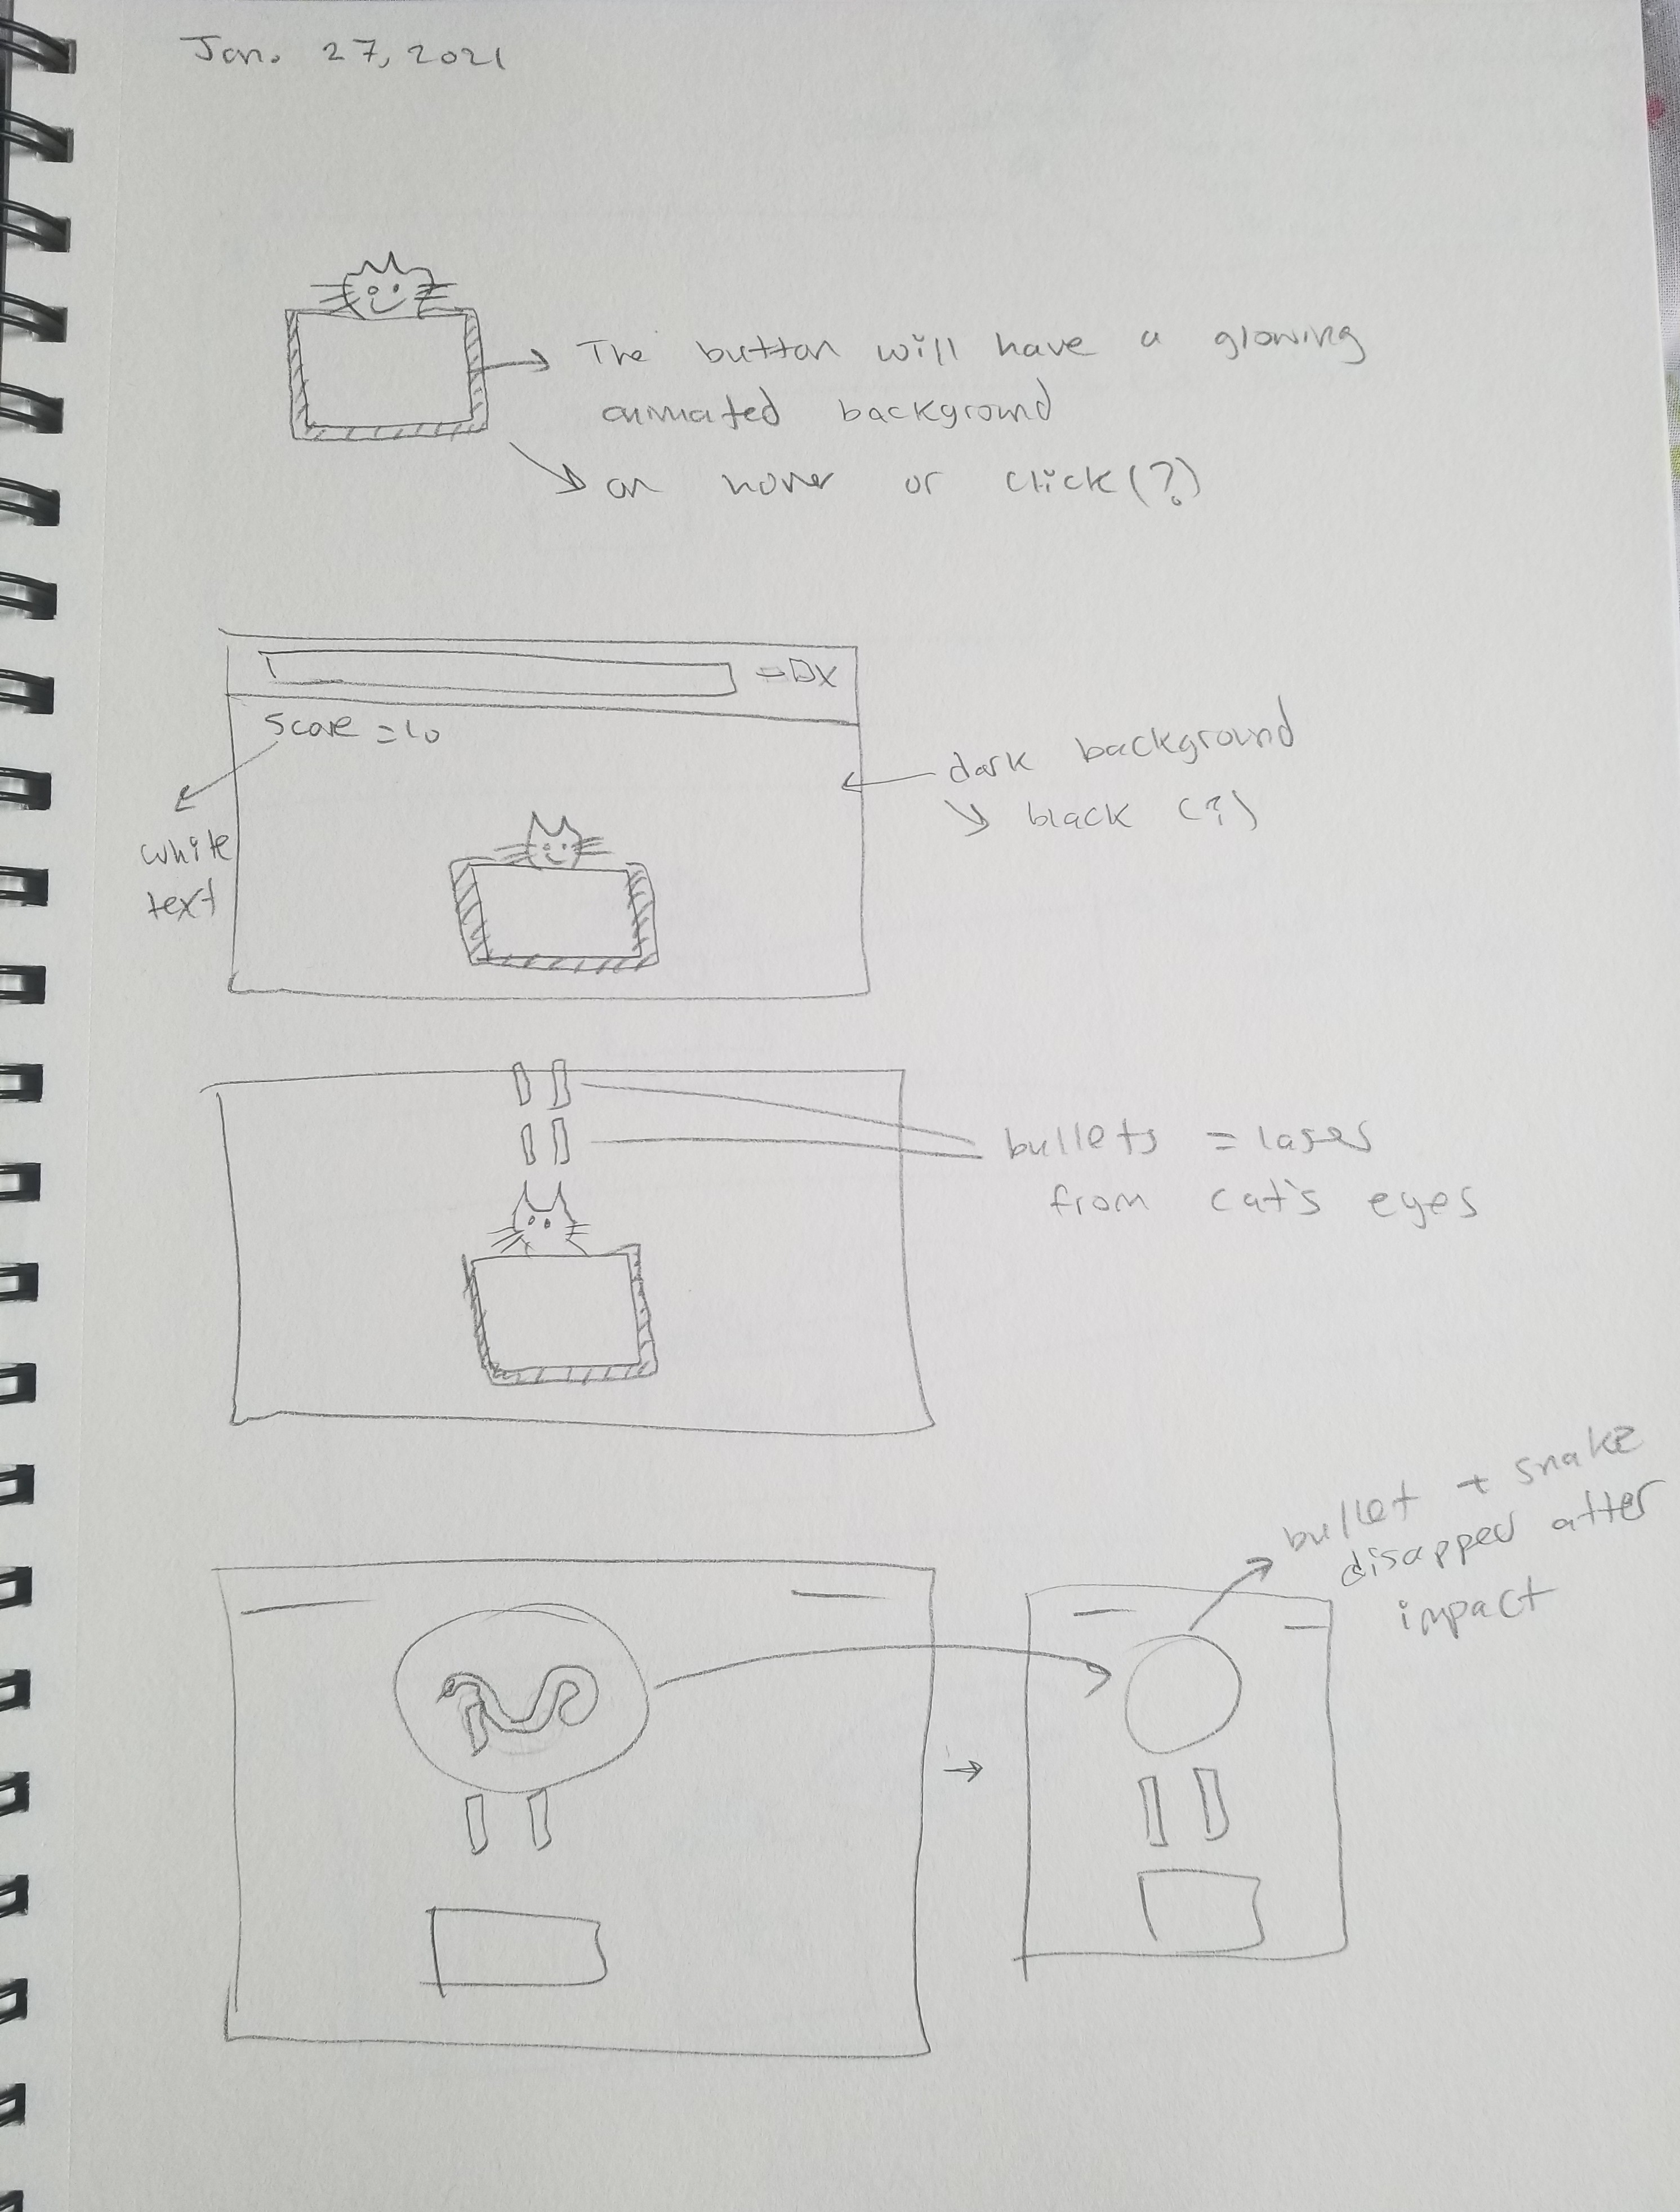 Jan. 27, 2021
The button will have a glowing
animated background
on hover or click(?)
Score = 10
white
text
dark background
black (?)
bullets = lases
from cat's eyes
bullet + snake
disapped after
impact